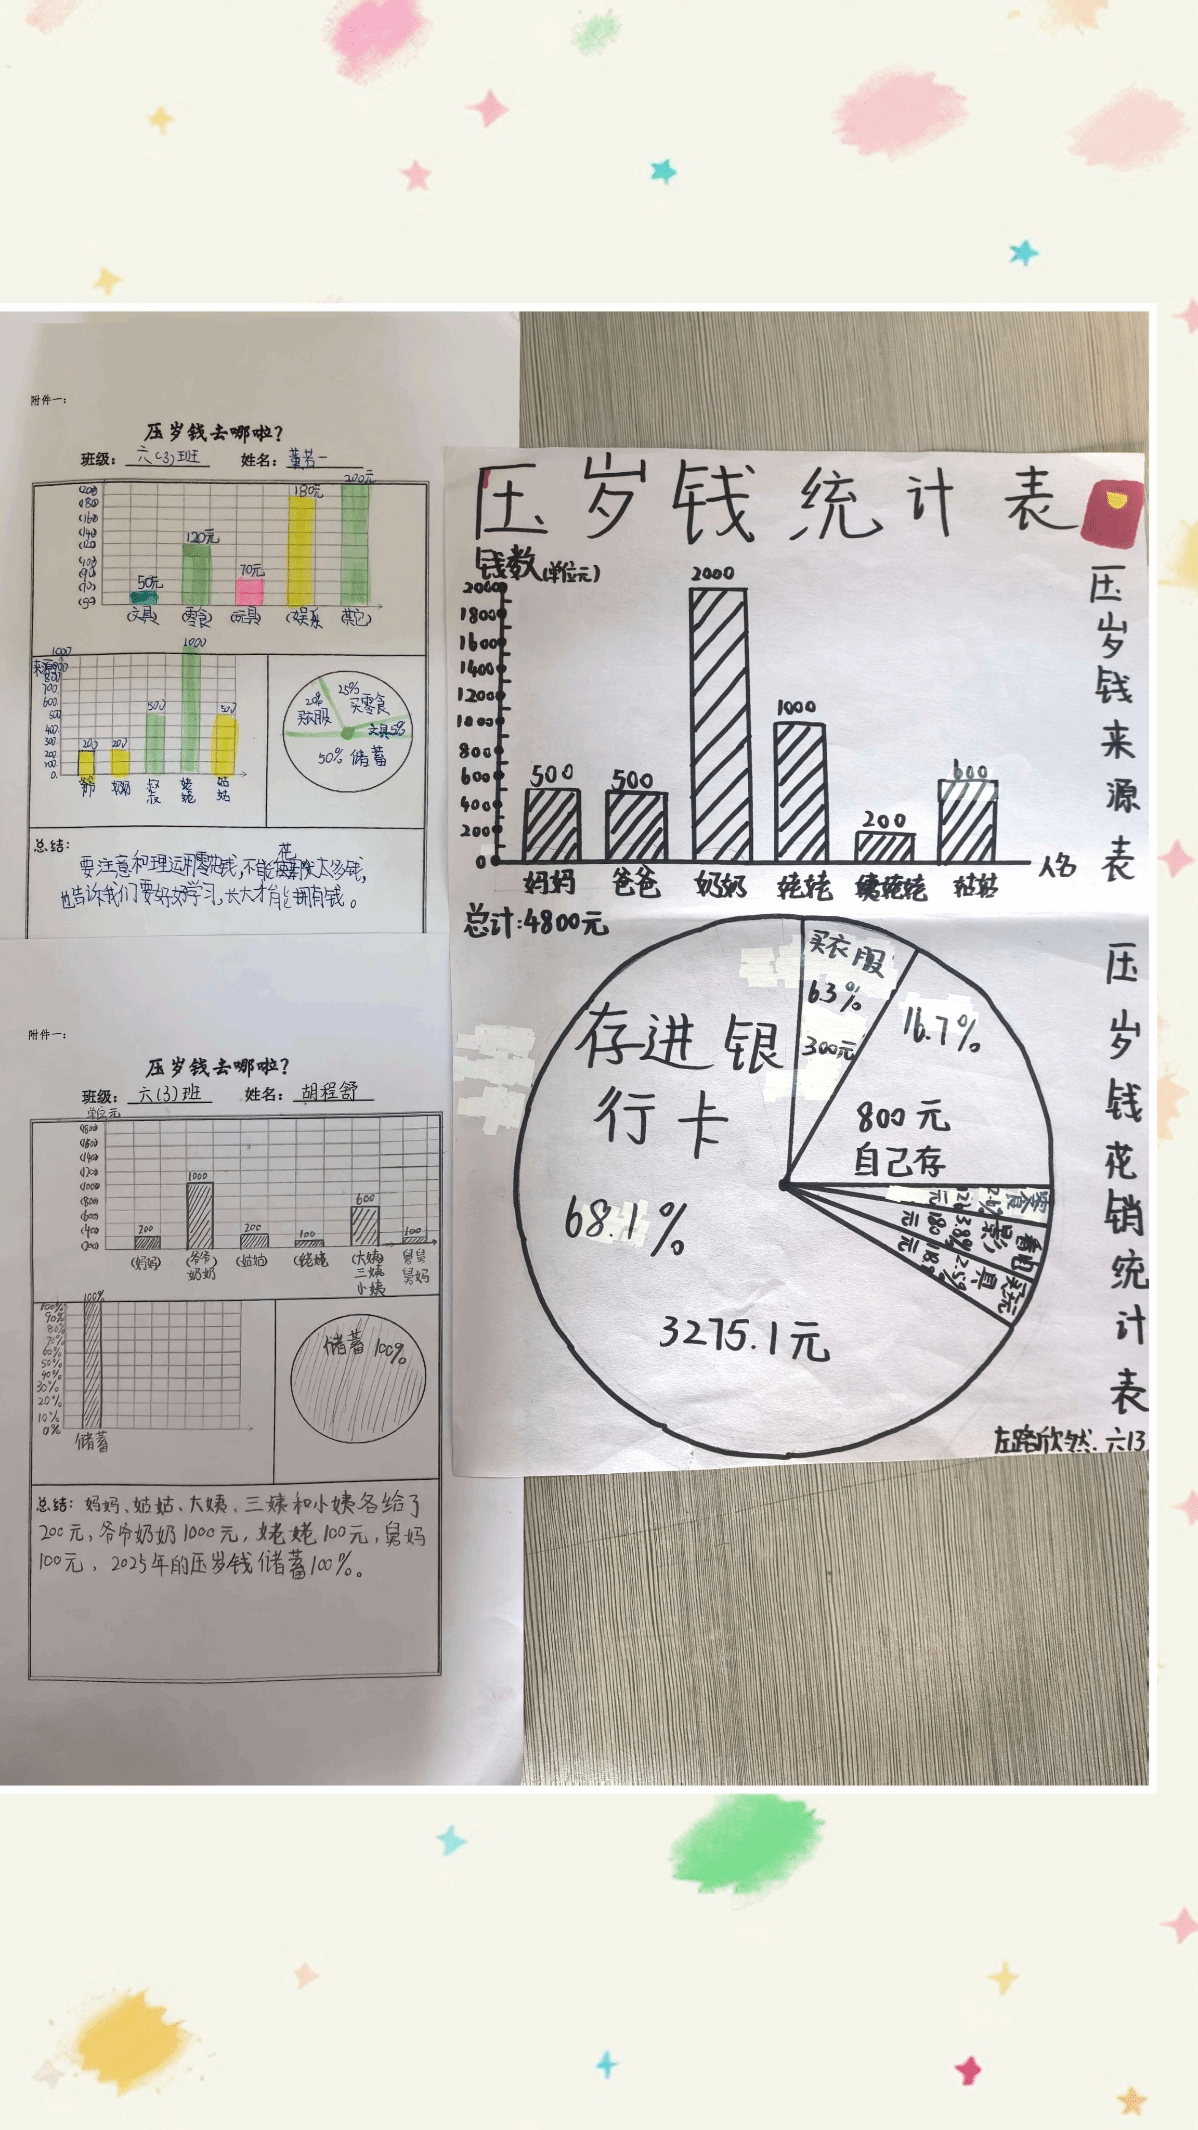 附件一：
压岁钱去哪啦？
班级：六(3)班 姓名：董若一
200元
180元
120元
70元
50元
(文具) (零食) (玩具) (娱乐) (其它)
来源
1000
800
700
600
500
400
300
200
100
0
200 200 500 1000 500
爷爷 奶奶 叔叔 姥姥 姑姑
20% 买衣服
25% 买零食
文具5%
50% 储蓄
总结：
要注意和理运用零花钱,不能花太多钱,
也告诉我们要好好学习,长大才能拥有钱。
附件一：
压岁钱去哪啦？
班级：六(3)班 姓名：胡程舒
单位元
200 1000 200 100 600 100
(妈妈) (爷爷奶奶) (姑姑) (姥姥) (大姨)三姨小姨 舅舅舅妈
100%
100%
90%
80%
70%
60%
50%
40%
30%
20%
10%
0%
储蓄
储蓄 100%
总结：妈妈、姑姑、大姨、三姨和小姨各给了
200元，爷爷奶奶1000元，姥姥100元，舅妈
100元，2025年的压岁钱储蓄100%。
压岁钱统计表
钱数(单位元)
2000
1800
1600
1400
1200
1000
800
600
400
200
0
500 500 2000 1000 200 600
妈妈 爸爸 奶奶 姥姥 姨姥姥 姑姑 人名
压岁钱来源表
总计:4800元
买衣服
6.3%
300元
16.7%
800元
自己存
存进银
行卡
68.1%
3275.1元
零食
看电影
买玩具
压岁钱花销统计表
左路欣然.六13